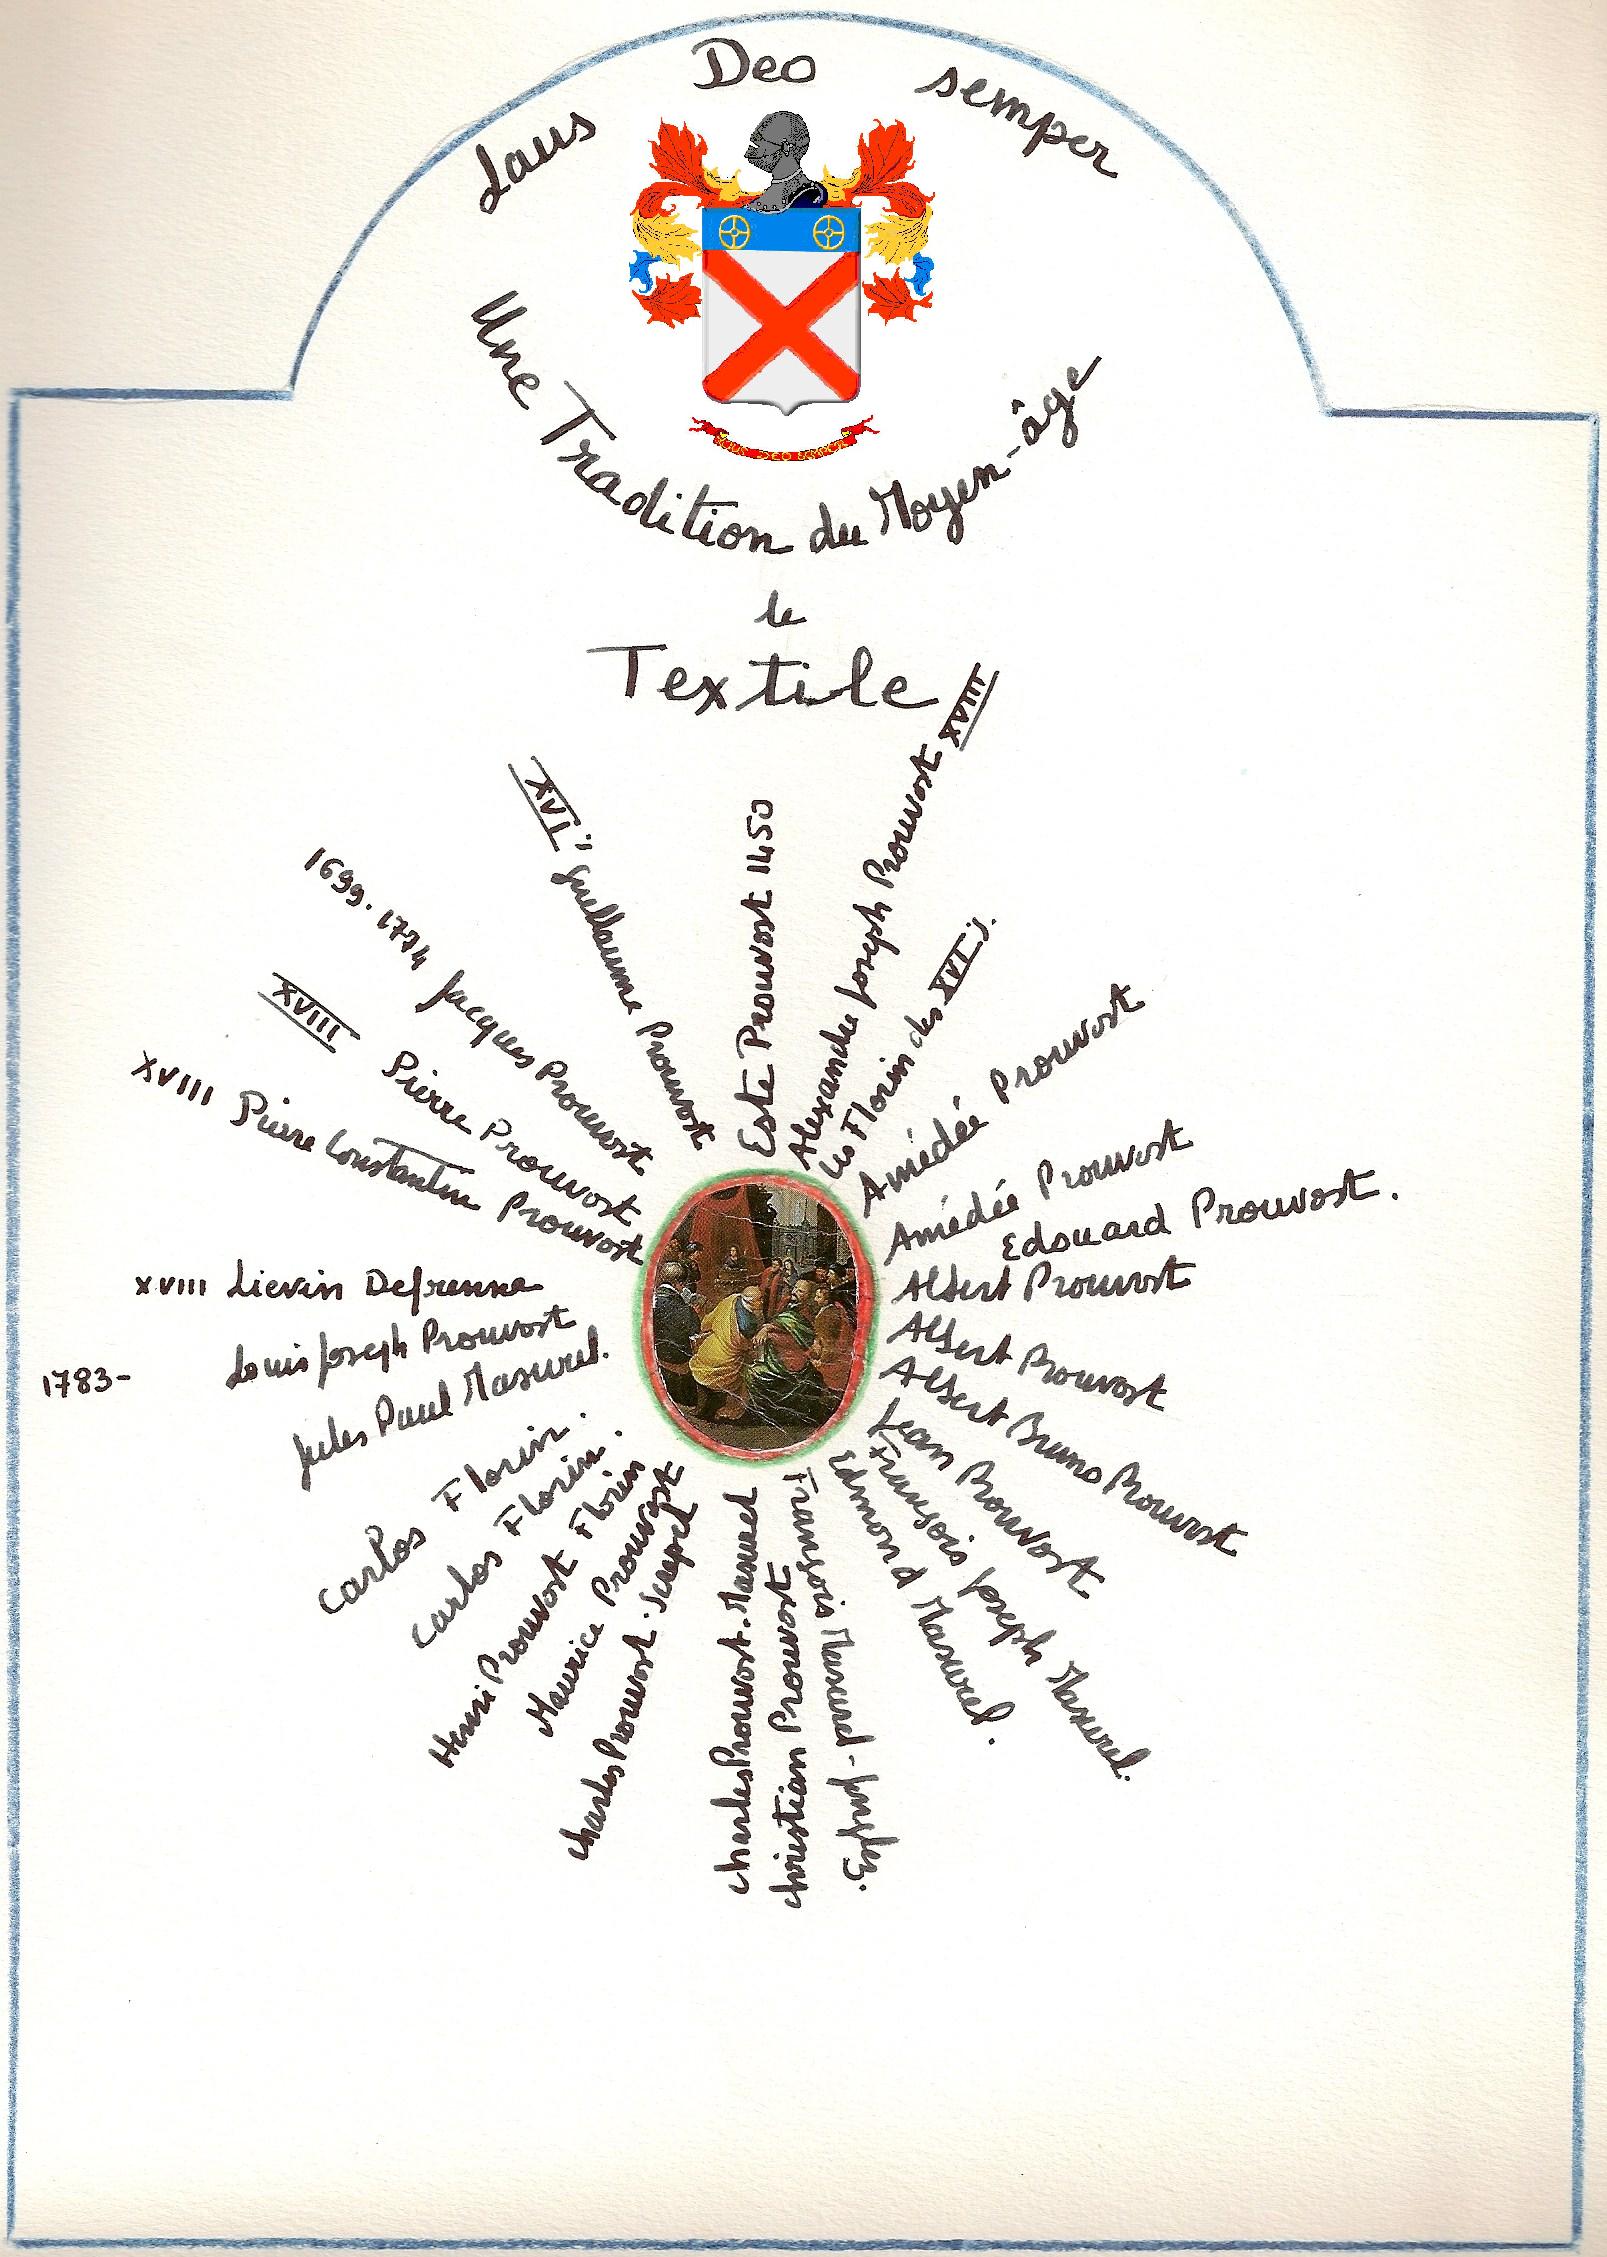 Laus Deo semper
LAUS DEO SEMPER
Une Tradition du Moyen-âge
le
Textile
Este Prouvost 1450
Alexandre Joseph Prouvost XVIII
Les Florin des XVI s.
Amédée Prouvost
Amédée Prouvost
Edouard Prouvost.
Albert Prouvost
Albert Prouvost
Albert Bruno Prouvost
Jean Prouvost
François Joseph Masurel.
Edmond Masurel.
François Masurel-Jonglez.
Christian Prouvost
Charles Prouvost.Masurel
Charles Prouvost.Screpel
Maurice Prouvost
Henri Prouvost Florin
Carlos Florin.
Carlos Florin.
Jules Paul Masurel.
1783- Louis Joseph Prouvost
XVIII Lievin Defrenne
XVIII Pierre Constantin Prouvost
XVIII Pierre Prouvost
1699.1774 Jacques Prouvost
XVI" Guillaume Prouvost